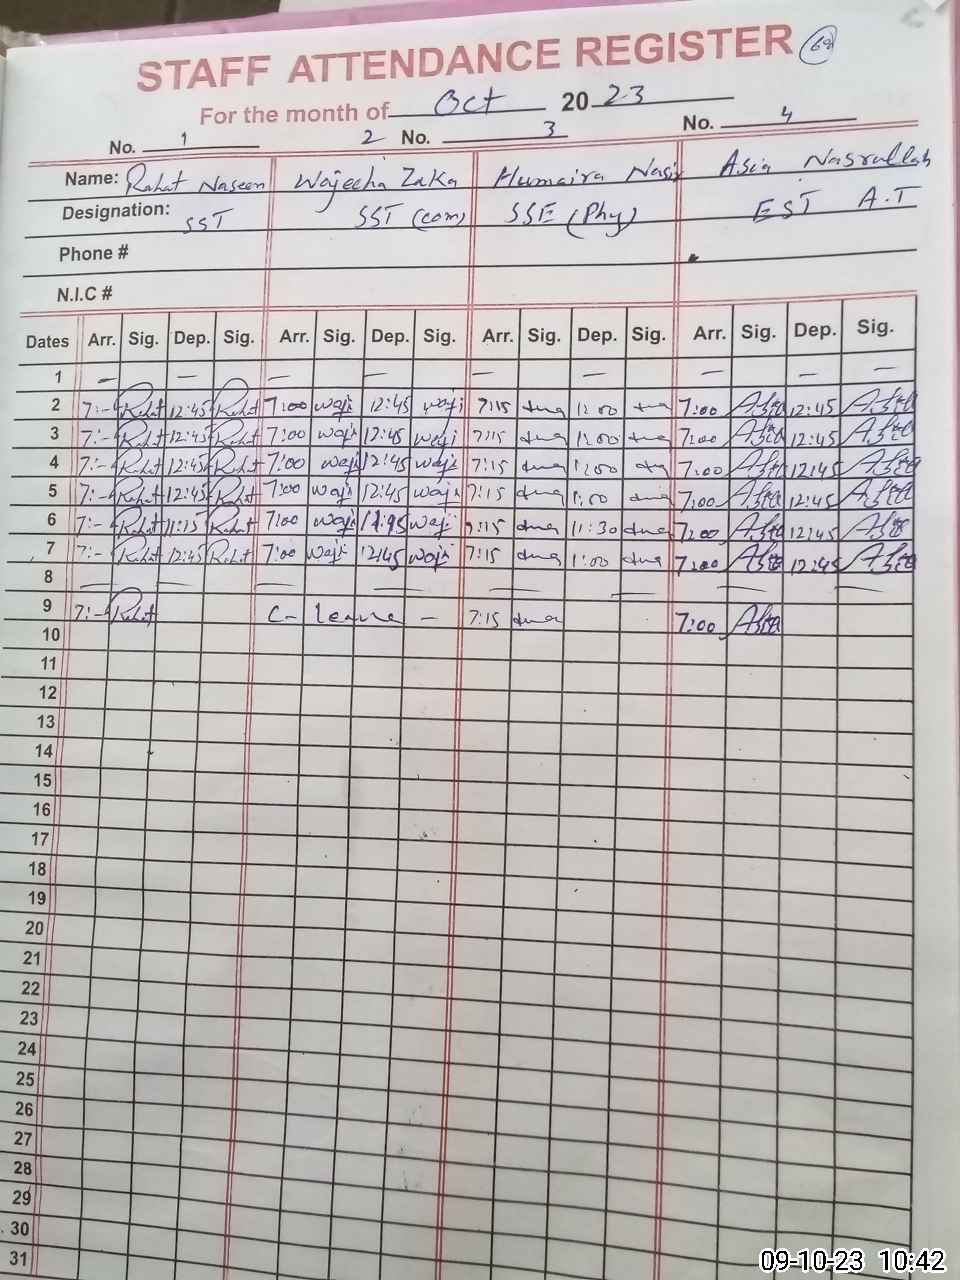 STAFF ATTENDANCE REGISTER 69
For the month of Oct 20 23
No. 1 2 No. 3 No. 4
Name: Rahat Naseem Wajeeha Zaka Humaira Nasir Asia Nasrullah
Designation: SST SST (com) SSE (Phy) EST A.T
Phone #
N.I.C #
Dates Arr. Sig. Dep. Sig. Arr. Sig. Dep. Sig. Arr. Sig. Dep. Sig. Arr. Sig. Dep. Sig.
1 — — — — — — — —
2 7:- Rahat 12:45 Rahat 7:00 waji 12:45 waji 7:15 12:00 7:00 Asia 12:45 Asia
3 7:- Rahat 12:45 Rahat 7:00 waji 12:45 waji 7:15 7:00 Asia 12:45 Asia
4 7:- Rahat 12:45 Rahat 7:00 waji 12:45 waji 7:15 7:00 Asia 12:45 Asia
5 7:- Rahat 12:45 Rahat 7:00 waji 12:45 waji 7:15 1:00 7:00 Asia 12:45 Asia
6 7:- Rahat 11:15 Rahat 7:00 waji waji 7:15 11:30 7:00 Asia 12:45 Asia
7 7:- Rahat 12:45 Rahat 7:00 waji 12:45 waji 7:15 1:00 7:00 Asia 12:45 Asia
8 — — — — — — — —
9 7:- Rahat C- leave - 7:15 7:00 Asia
10
11
12
13
14
15
16
17
18
19
20
21
22
23
24
25
26
27
28
29
30
31
09-10-23 10:42